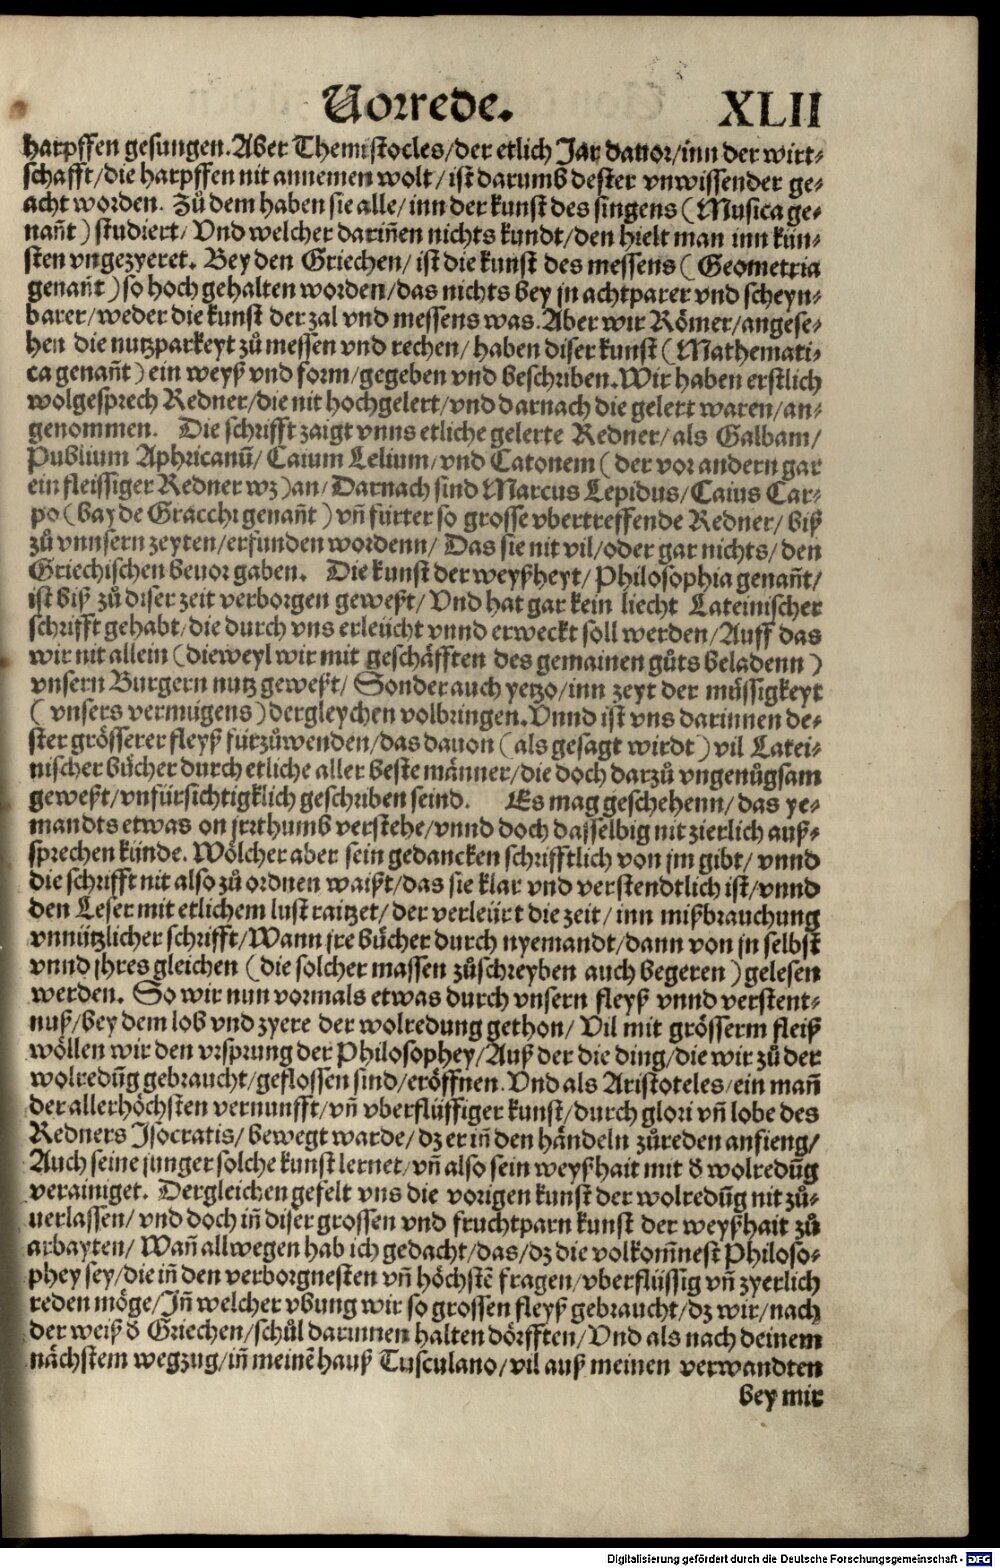 Vorrede. XLII
harpffen gesungen. Aber Themistocles/der etlich Jar dauor/inn der wirt⸗
schafft/die harpffen nit annemen wolt/ist darumb dester vnwissender ge⸗
acht worden. Zů dem haben sie alle/inn der kunst des singens (Musica ge⸗
nañt) studiert/Vnd welcher dariñen nichts kundt/den hielt man inn kün⸗
sten vngezyeret. Bey den Griechen/ist die kunst des messens (Geometria
genañt) so hoch gehalten worden/das nichts bey jn achtparer vnd scheyn⸗
barer/weder die kunst der zal vnd messens was. Aber wir Römer/angese⸗
hen die nutzparkeyt zů messen vnd rechen/haben diser kunst (Mathemati⸗
ca genañt) ein weyß vnd form/gegeben vnd beschriben. Wir haben erstlich
wolgesprech Redner/die nit hochgelert/vnd darnach die gelert waren/an⸗
genommen. Die schrifft zaigt vnns etliche gelerte Redner/als Galbam/
Publium Aphricanū/Caium Lelium/vnd Catonem (der vor andern gar
ein fleissiger Redner wz) an/Darnach sind Marcus Lepidus/Caius Car⸗
po (bayde Gracchi genañt) vñ fürter so grosse vbertreffende Redner/biß
zů vnnsern zeyten/erfunden wordenn/Das sie nit vil/oder gar nichts/den
Griechischen beuor gaben. Die kunst der weyßheyt/Philosophia genañt/
ist biß zů diser zeit verborgen geweßt/Vnd hat gar kein liecht Lateinischer
schrifft gehabt/die durch vns erleücht vnnd erweckt soll werden/Auff das
wir nit allein (dieweyl wir mit geschäfften des gemainen gůts beladenn)
vnsern Burgern nutz geweßt/Sonder auch yetzo/inn zeyt der müssigkeyt
(vnsers vermügens) dergleychen volbringen. Vnnd ist vns darinnen de⸗
ster grösserer fleyß fürzůwenden/das dauon (als gesagt wirdt) vil Latei⸗
nischer bücher durch etliche aller beste männer/die doch darzů vngenůgsam
geweßt/vnfürsichtigklich geschriben seind. Es mag geschehenn/das ye⸗
mandts etwas on jrrthumb verstehe/vnnd doch dasselbig nit zierlich auß⸗
sprechen künde. Wölcher aber sein gedancken schrifftlich von jm gibt/vnnd
die schrifft nit also zů ordnen waißt/das sie klar vnd verstendtlich ist/vnnd
den Leser mit etlichem lust raitzet/der verleürt die zeit/inn mißbrauchung
vnnützlicher schrifft/Wann jre bücher durch nyemandt/dann von jn selbst
vnnd jhres gleichen (die solcher massen zůschreyben auch begeren) gelesen
werden. So wir nun vormals etwas durch vnsern fleyß vnnd verstent⸗
nuß/bey dem lob vnd zyere der wolredung gethon/Vil mit grösserm fleiß
wöllen wir den vrsprung der Philosophey/Auß der die ding/die wir zů der
wolredūg gebraucht/geflossen sind/eröffnen. Vnd als Aristoteles/ein mañ
der allerhöchsten vernunfft/vñ vberflüssiger kunst/durch glori vñ lobe des
Redners Isocratis/bewegt warde/dz er iñ den händeln zůreden anfieng/
Auch seine junger solche kunst lernet/vñ also sein weyßhait mit d̕ wolredūg
verainiget. Dergleichen gefelt vns die vorigen kunst der wolredūg nit zů⸗
uerlassen/vnd doch iñ diser grossen vnd fruchtparn kunst der weyßhait zů
arbayten/Wañ allwegen hab ich gedacht/das/dz die volkom̃nest Philoso⸗
phey sey/die iñ den verborgnesten vñ höchstē fragen/vberflüssig vñ zyerlich
reden möge/Iñ welcher vbung wir so grossen fleyß gebraucht/dz wir/nach
der weiß d̕ Griechen/schůl darinnen halten dörfften/Vnd als nach deinem
nächstem wegzug/iñ meinē hauß Tusculano/vil auß meinen verwandten
bey mir
Digitalisierung gefördert durch die Deutsche Forschungsgemeinschaft - DFG